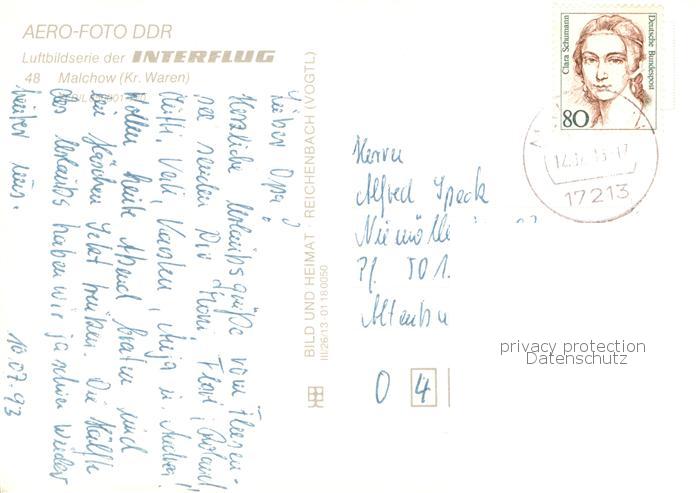 AERO-FOTO DDR
Luftbildserie der INTERFLUG
48 Malchow (Kr. Waren)
Lieber Opa!
Herzliche Urlaubsgrüße vom Fleesen-
see senden Dir Moni, Flori, Roland
Steffi, Veit, Karsten, Anja u. Andrea!
Wollen heute Abend braten und
ein Fläschen Sekt trinken. Die Hälfte
des Urlaubs haben wir ja schon wieder
hinter uns.
10.07.93
BILD UND HEIMAT · REICHENBACH (VOGTL)
III/26/13 01180050
Clara Schumann
Deutsche Bundespost
80
17213
Herrn
Alfred Speck
Pf. 501
O 4
privacy protection
Datenschutz